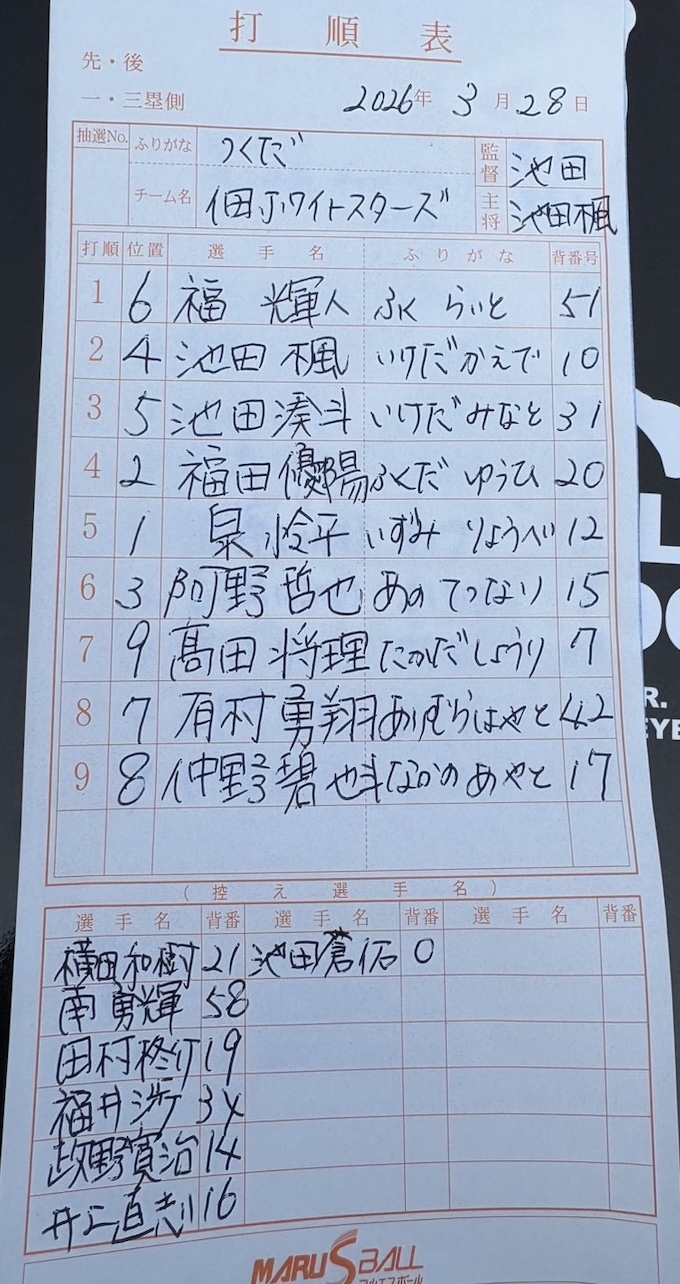 打順表
先・後
一・三塁側 2026年 3月28日
抽選No. ふりがな つくだ 監督 池田
チーム名 佃ホワイトスターズ 主将 池田楓
打順 位置 選手名 ふりがな 背番号
1 6 福 輝人 ふく らいと 51
2 4 池田 楓 いけだかえで 10
3 5 池田湊斗 いけだみなと 31
4 2 福田優陽 ふくだ ゆうひ 20
5 1 泉 怜平 いずみ りょうへい 12
6 3 阿野哲也 あの てつなり 15
7 9 髙田将理 たかだしょうり 7
8 7 有村勇翔 ありむらはやと 42
9 8 仲野碧也斗 なかの あやと 17
(控え選手名)
選手名 背番 選手名 背番 選手名 背番
横田和樹 21 池田蒼佑 0
南勇輝 58
田村柊 19
福井渉 34
政野寛治 14
井上直志 16
MARU S BALL
マルエスボール
R.
EYE